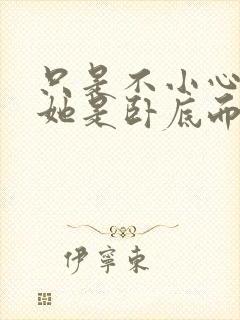 只是不小心
她是卧底而
伊寧東